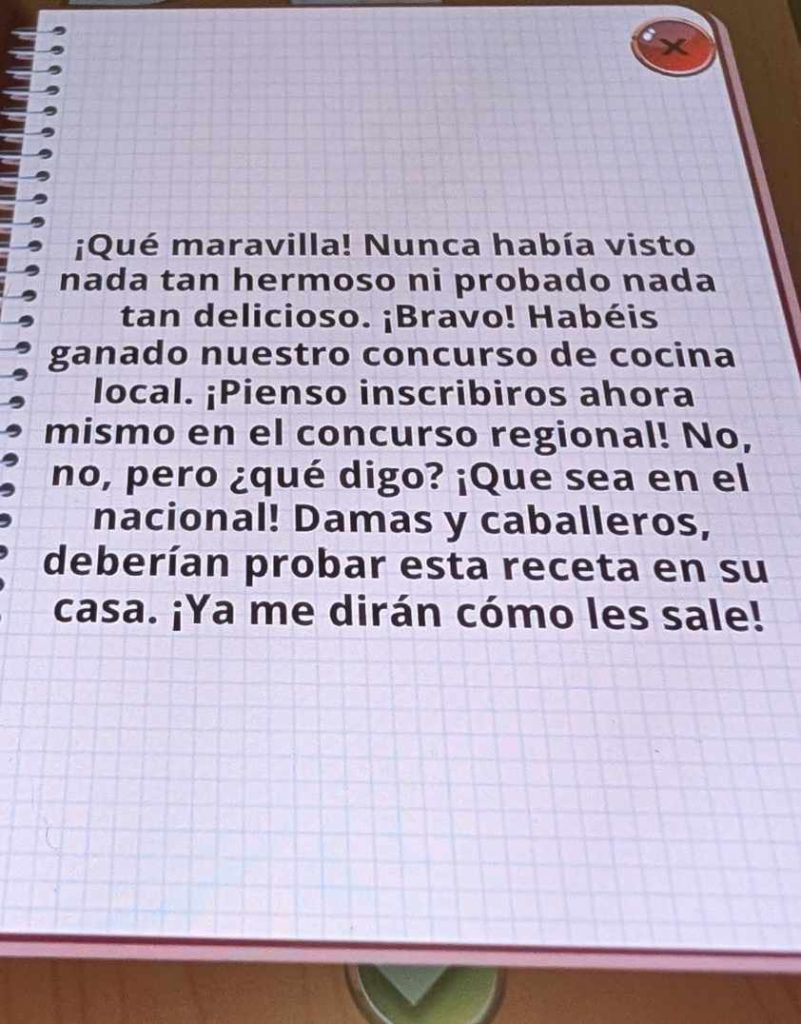 ¡Qué maravilla! Nunca había visto
nada tan hermoso ni probado nada
tan delicioso. ¡Bravo! Habéis
ganado nuestro concurso de cocina
local. ¡Pienso inscribiros ahora
mismo en el concurso regional! No,
no, pero ¿qué digo? ¡Que sea en el
nacional! Damas y caballeros,
deberían probar esta receta en su
casa. ¡Ya me dirán cómo les sale!